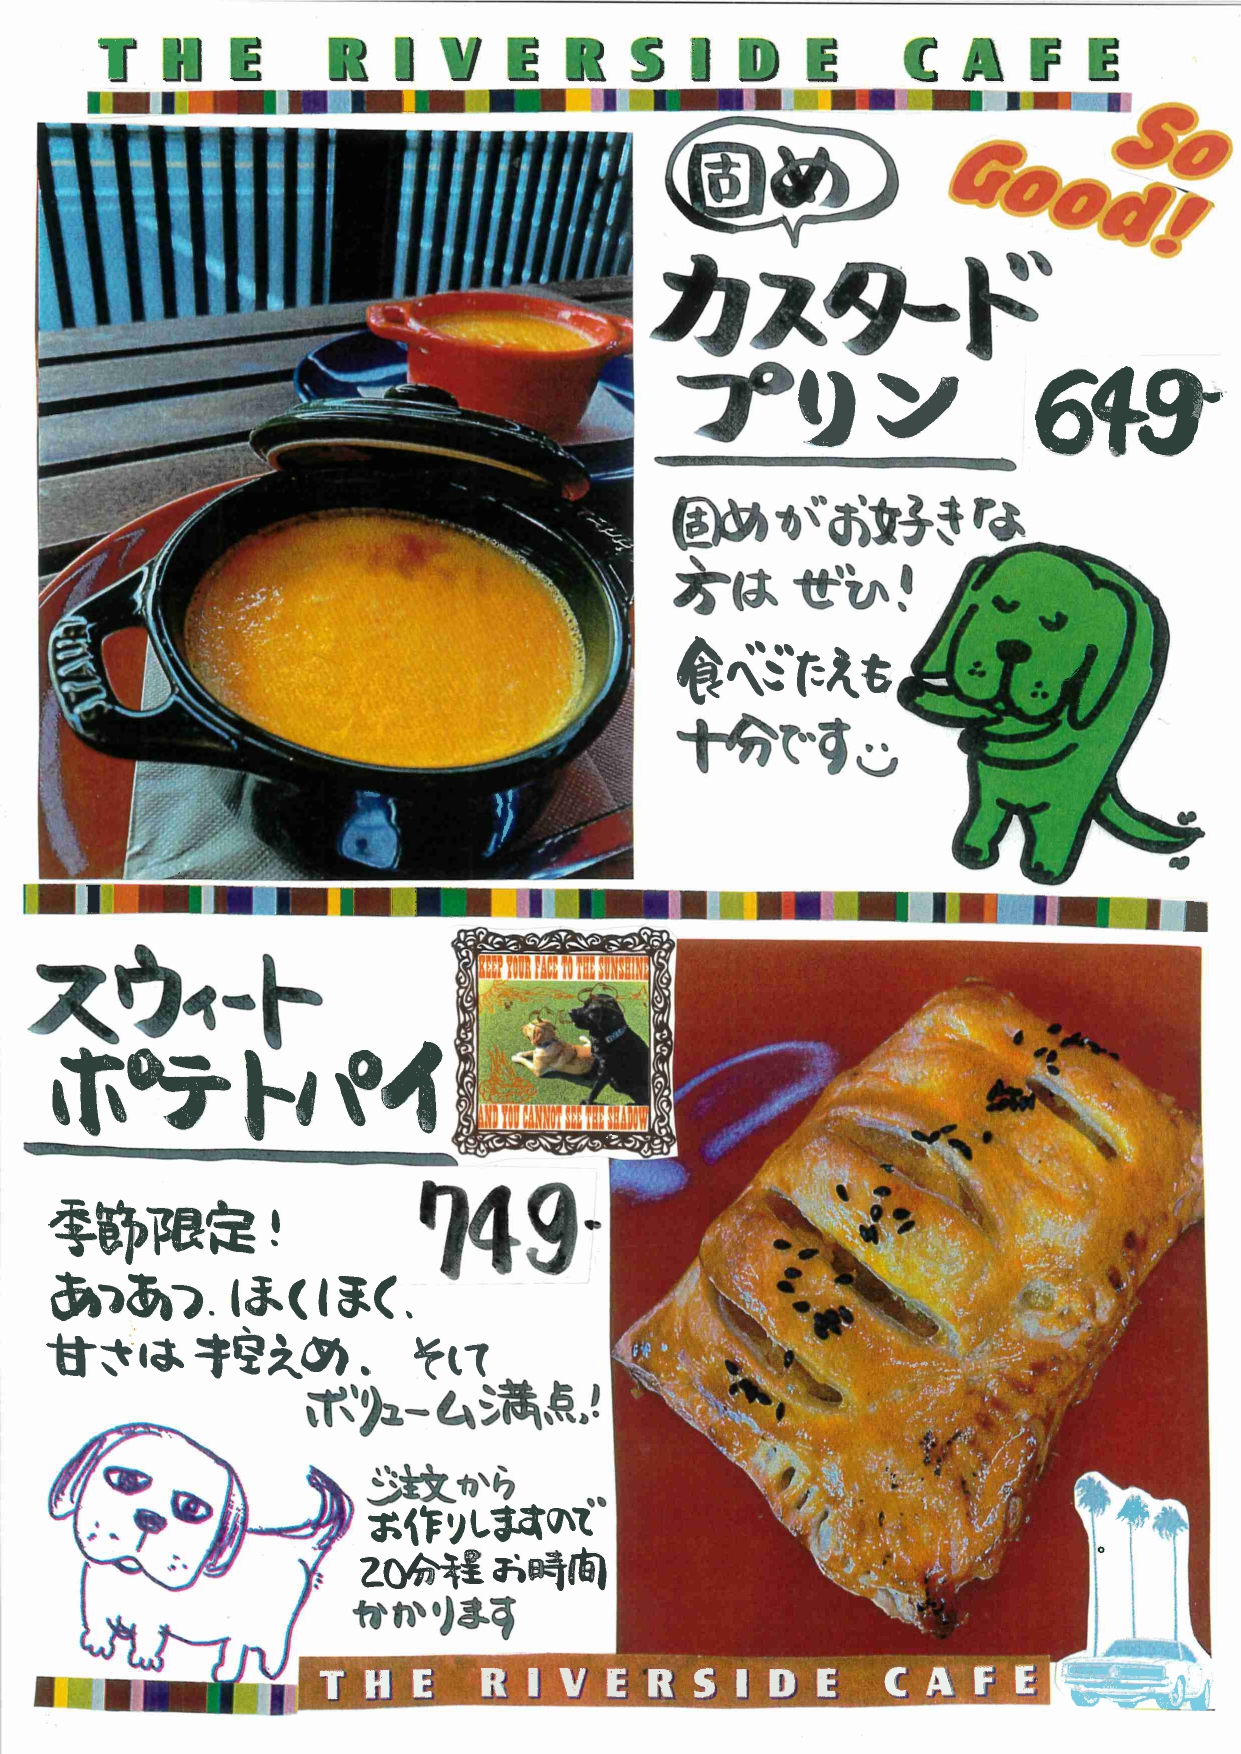 THE RIVERSIDE CAFE
So
Good!
固め
カスタード
プリン 649-
固めがお好きな
方は ぜひ!
食べごたえも
十分です
スウィート
ポテトパイ
KEEP YOUR FACE TO THE SUNSHINE
AND YOU CANNOT SEE THE SHADOW
749-
季節限定!
あつあつ、ほくほく、
甘さは控えめ、そして
ボリューム満点!
ご注文から
お作りしますので
20分程お時間
かかります
THE RIVERSIDE CAFE